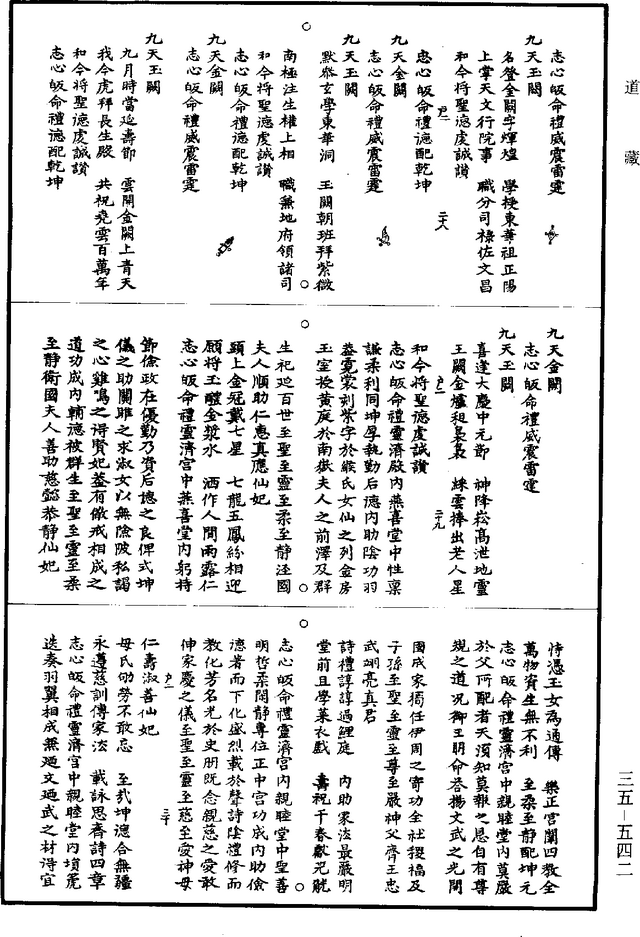 道藏
志心皈命禮威震雷霆
九天玉闕
名登金闕字輝煌 學授東華祖正陽
上掌天文行院事 職分司祿佐文昌
和令将聖德虔誠讚
志心皈命禮德配乾坤
尹二 二十八
九天金闕
志心皈命禮威震雷霆
九天玉闕
默叅玄學東華洞 玉闕朝班拜紫微
南極注生權上相 職兼地府領諸司
和令将聖德虔誠讚
志心皈命禮德配乾坤
九天金闕
志心皈命禮威震雷霆
九天玉闕
九月時當延壽節 雲開金闕上青天
我今虎拜長生殿 共祝堯雲百萬年
和令将聖德虔誠讚
志心皈命禮德配乾坤
九天金闕
志心皈命禮威震雷霆
九天玉闕
喜逢大慶中元節 神降崧高泄地靈
玉闕金爐袒裊裊 綵雲捧出老人星
尹二 二十九
和令将聖德虔誠讚
志心皈命禮靈濟殿内燕喜堂中性稟
謙柔利同坤厚執勤后德内助陰功羽
葢霓裳列紫字於緱氏女仙之列金房
玉室授黄庭於南嶽夫人之前澤及群
生祀延百世至聖至靈至柔至静逕國
夫人順助仁惠真應仙妃
頭上金冠戴七星 七龍五鳳紛相迎
願将玉醴金漿水 洒作人間雨露仁
志心皈命禮靈濟宫中燕喜堂内躬持
節儉政在優勤乃資后德之良俾式坤
儀之助關雎之求淑女以無險陂私謁
之心雞鳴之得賢妃葢有儆戒相成之
道功成内輔德被群生至聖至靈至柔
至静衛國夫人善助慈懿恭静仙妃
恃憑玉女為通傳 樂正宫闈四教全
萬物資生無不利 至柔至静配坤元
志心皈命禮靈濟宫中親睦堂内莫嚴
於父所配者天須知莫報之恩自有尊
親之道况御王明命荅揚文武之光開
國成家獨任伊周之寄功全社稷福及
子孫至聖至靈至尊至嚴神父齊王忠
武翊亮真君
詩禮諄諄過鯉庭 内助家法最嚴明
堂前且學萊衣戲 壽祝千春獻兕觥
志心皈命禮靈濟宫内親睦堂中聖善
明哲柔閑静專位正中宫功成内助儉
德著而下化盛烈載於聲詩陰禮修而
教化芳名光於史册既念親慈之愛敢
伸家慶之儀至聖至靈至慈至愛神母
仁壽淑善仙妃
尹二 三十
母氏劬勞不敢忘 至哉坤德合無疆
永遵慈訓傳家法 載詠思齊詩四章
志心皈命禮靈濟宫中親睦堂内塤箎
迭奏羽翼相成無廼文廼武之材得宜
三五－五四二